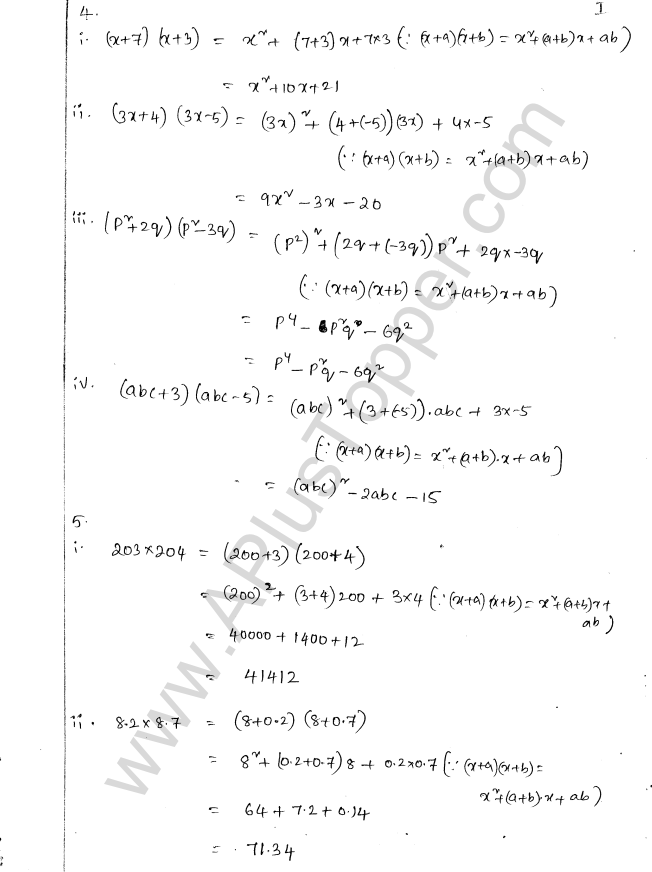 4. I
i. (x+7) (x+3) = x² + (7+3)x + 7×3 (∵ (x+a)(x+b) = x²+(a+b)x+ab)
= x²+10x+21
ii. (3x+4) (3x-5) = (3x)² + (4+(-5))(3x) + 4x-5
(∵ (x+a)(x+b) = x²+(a+b)x+ab)
= 9x² - 3x - 20
iii. (p²+2q)(p²-3q) = (p2)² + (2q+(-3q))p² + 2q×-3q
(∵ (x+a)(x+b) = x²+(a+b)x+ab)
= p⁴ - p²q - 6q²
= p⁴ - p²q - 6q²
iv. (abc+3)(abc-5) = (abc)² + (3+(-5)).abc + 3x-5
(∵ (x+a)(x+b) = x²+(a+b).x+ab)
= (abc)² - 2abc - 15
5.
i. 203×204 = (200+3)(200+4)
= (200)² + (3+4)200 + 3×4 (∵ (x+a)(x+b) = x²+(a+b)x+
ab)
= 40000+1400+12
= 41412
ii. 8.2×8.7 = (8+0.2) (8+0.7)
= 8² + (0.2+0.7)8 + 0.2×0.7 (∵ (x+a)(x+b) =
x²+(a+b).x+ab)
= 64 + 7.2 + 0.14
= 71.34
www.APlusTopper.com